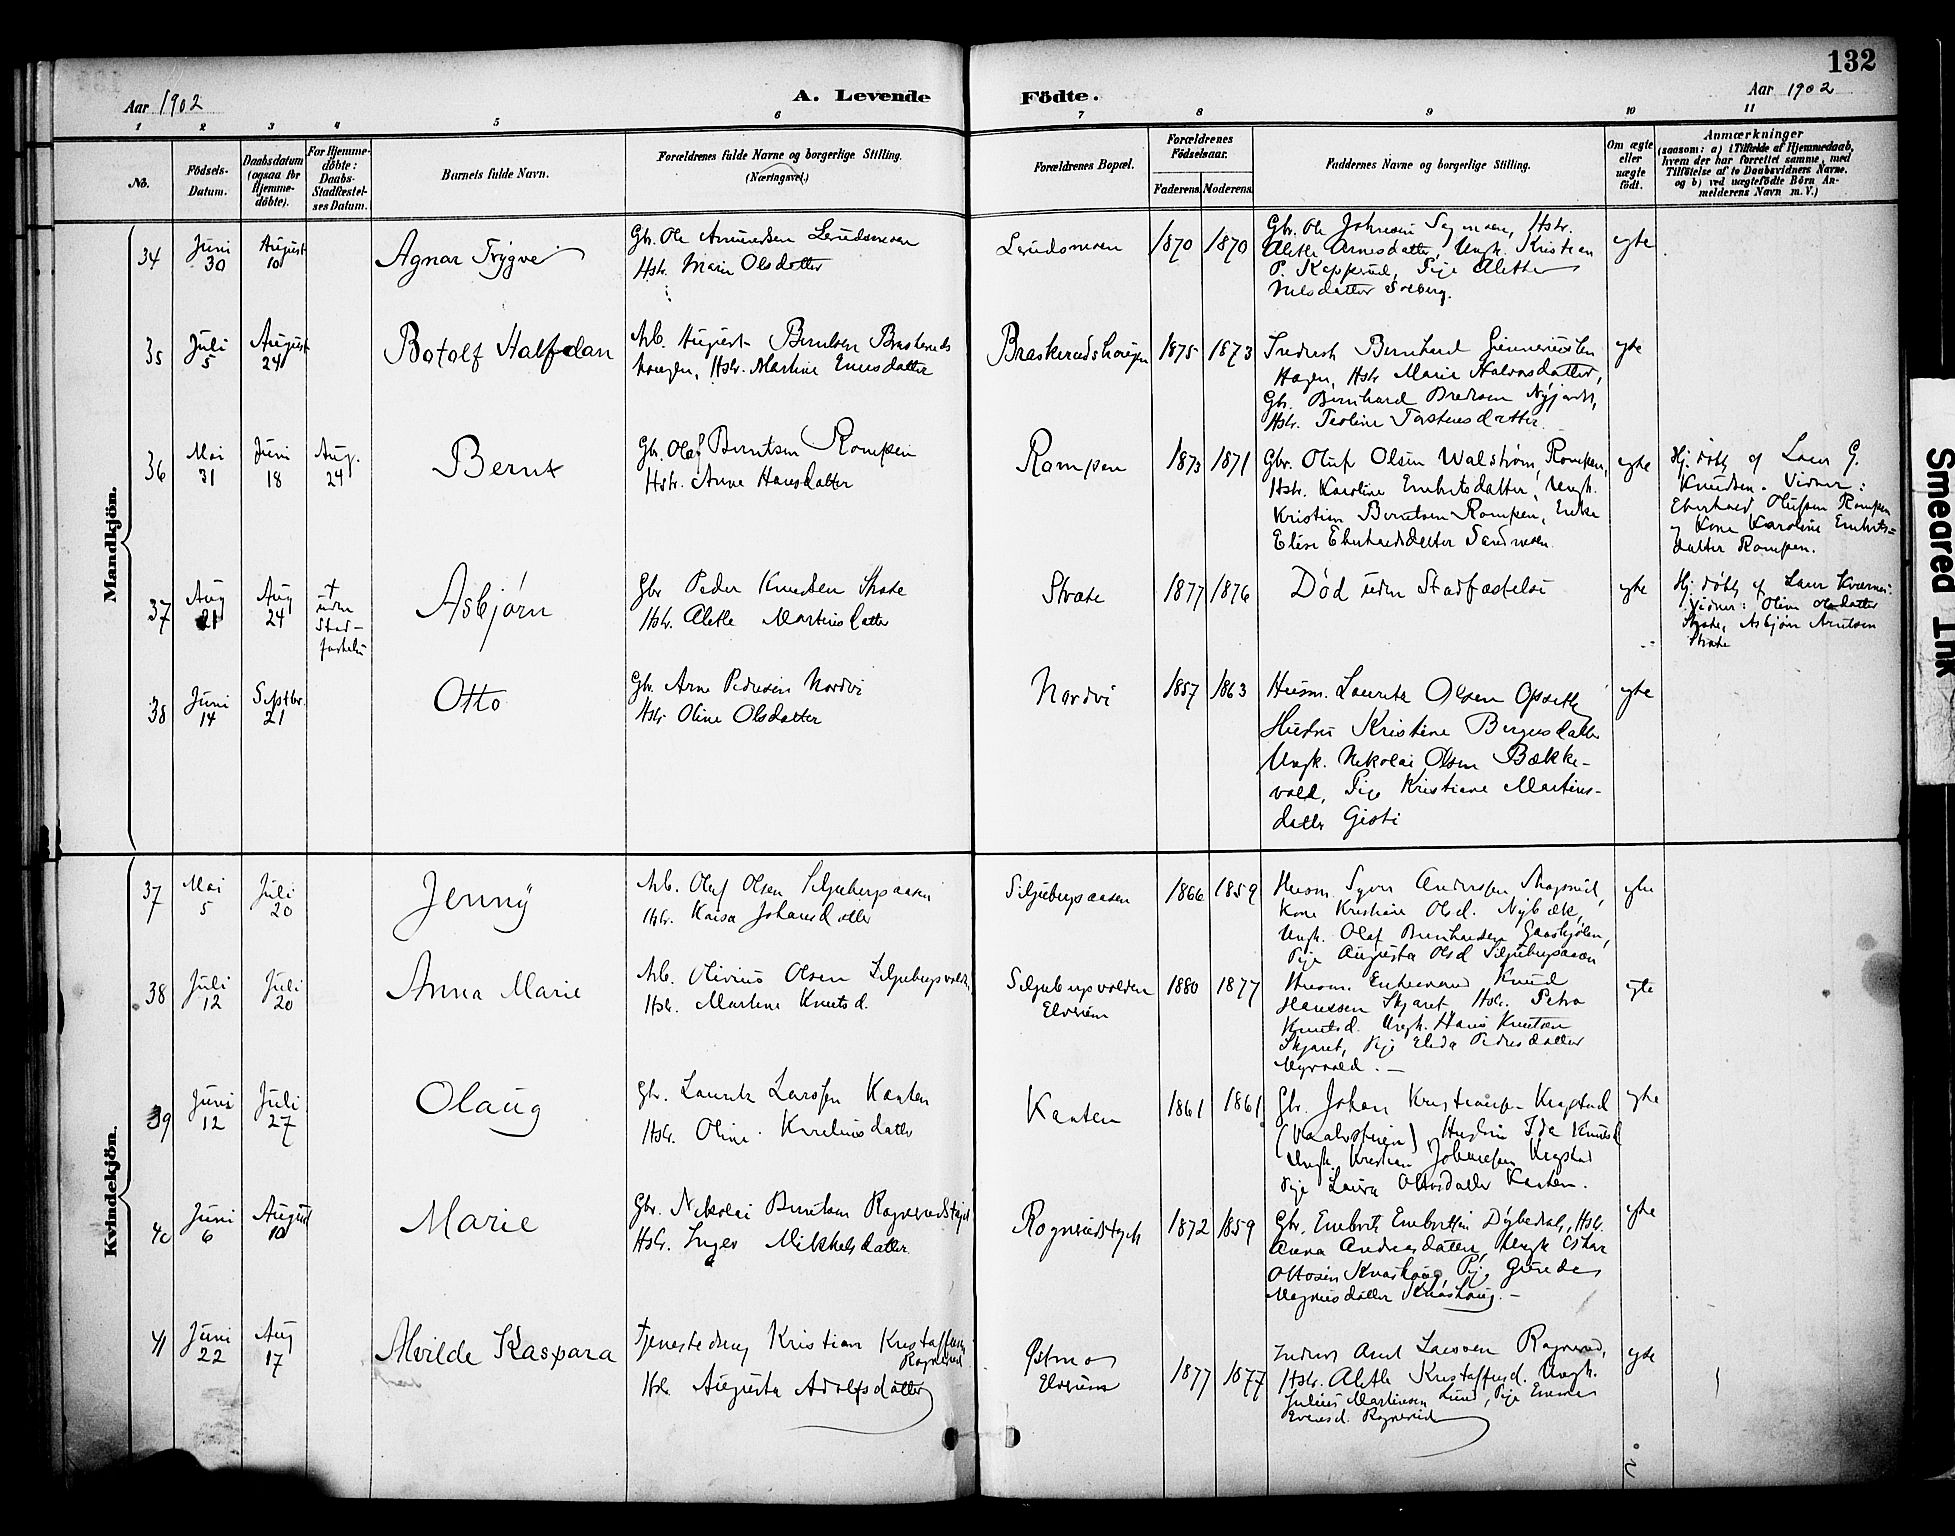 132
Aar 1902
A. Levende
Födte.
Aar 1902
1 2 3 4 5 6 7 8 9 10 11
No.
Födsels-
Datum.
Daabsdatum
(ogsaa for
Hjemme-
döbte).
For Hjemme-
döbte:
Daabs-
Stadfæstel-
ses Datum.
Barnets fulde Navn.
Forældrenes fulde Navne og borgerlige Stilling.
(Næringsvei.)
Forældrenes Bopæl.
Forældrenes
Födselsaar.
Faderens. Moderens.
Faddernes Navne og borgerlige Stilling.
Om ægte
eller
uægte
født.
Anmærkninger
(saasom: a) i Tilfælde af Hjemmedaab,
hvem der har forrettet samme, med
Tilföielse af to Daabsvidners Navne.
og b) ved uægtefödte Börn An-
melderens Navn m. V.)
Mandkjön.
34
Juni
30
August
10
Agnar Trygve
Gbr. Ole Amundsen
Hstr. Marie Olsdatter
1870 1870
Gbr. Ole Johnsen Hstr.
Alethe Arnesdatter, Ungk. Kristian
P. Kopperud, Pige Alethe
Nilsdatter Solberg.
ægte
35
Juli
5
August
24
Botolf Halfdan
Arb. August Berntsen Braskeruds
haugen, Hstr. Martine Enersdatter
Braskerudshaugen
1875 1873
Fredrik Bernhard Gunneriusen
Hagen, Hstr Marie Halvorsdatter,
Gbr. Bernhard Bredesen
Hstr. Teoline Torstensdatter.
ægte
36
Mai
31
Juni
18
Aug.
24
Bernt
Gbr. Olaf Berntsen Rompen
Hstr. Anne Hansdatter
Rompen
1873 1871
Gbr. Oluf Olsen Walstrøm, Rompen,
Hstr. Karoline Embretsdatter, Ungk.
Kristian Berntsen Rompen, Enke
Elise Eberhardsdatter
ægte
Hj. døbt af Lars G.
Knudsen. Vidner:
Eberhard Olufsen Rompen
og Kone Karoline Embrets-
datter Rompen.
37
Aug
21
Aug
24
†
uden
Stad-
fæstelse
Asbjørn
Gbr Peder Knudsen Strate
Hstr. Alethe Martinsdatter
Strate
1877 1876
Død uden Stadfæstelse
ægte
Hj. døbt af Lars
Vidner: Oline Olsdatter
Strate, Asbjørn Arntsen
Strate
38
Juni
14
Septbr.
21
Otto
Gbr. Arne Pedersen Nordvi
Hstr Oline Olsdatter
Nordvi
1857 1863
Husm. Laurits Olsen Opseth
Hustru Kristine Birgersdatter
Ungk. Nikolai Olsen Bække-
vold, Pige Kristiane Martins-
datter Gioti
ægte
Kvindekjön.
37
Mai
5
Juli
20
Jenny
Arb. Oluf Olsen Siljubergsaasen
Hstr. Kaisa Johansdatter
Siljubergsaasen
1866 1859
Husm. Syver Andersen
Kone Kristiane Olsd. Nybæk,
Ungk. Olaf Bernhardsen
Pige Augusta Olsd Siljubergsaasen
ægte
38
Juli
12
Juli
20
Anna Marie
Arb. Olivius Olsen Siljubergvolden
Hstr. Martine Knutsd.
Siljubergvolden
Elverum
1880 1877
Husm. Enkemand Knud
Hanssen Skjaret Hstr. Petra
Knutsd. Ungk. Hans Knutsen
Skjaret, Pige Elida Pedersdatter
Myrvold. -
ægte
39
Juni
12
Juli
27
Olaug
Gbr. Laurits Larssen Kanten
Hstr. Oline Kareliusdatter
Kanten
1861 1861
Gbr. Johan Kristiansen Kragstad
Hustru Ida Knutsd
Ungk. Kristian Johansen Kragstad
Pige Laura Olausdatter Kanten.
ægte
40
Juni
6
August
10
Marie
Gbr. Nikolai Berntsen Rognerudstryk
Hstr. Inger Mikkelsdatter.
Rognerudstryk
1872 1859
Gbr. Embret Embretsen Dybedal, Hstr.
Anna Andreasdatter, Ungk Oskar
Ottosen Knashaug, Pige Gunda
Magnusdatter Knashaug. -
ægte
41
Juni
22
Aug
17
Alvilde Kaspara
Tjenestedreng Kristian Kristoffersen
Rognerud
Hst. Augusta Adolfsdatter
Østmo
Elverum
1877 1877
Larssen Rognerud,
Hstr. Alethe Kristoffersd. Ungk.
Julius Martinsen Lund, Pige Emma
Evensd. Rognerud
ægte
Smeared Ink